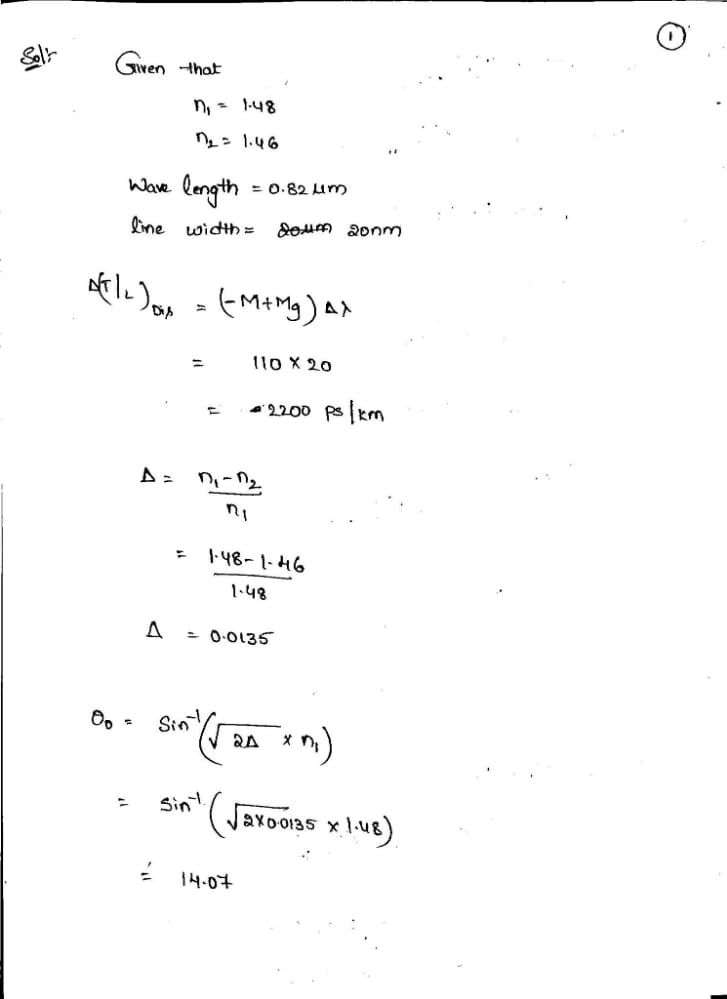 1
Sol:-
Given that
n₁ = 1.48
n₂ = 1.46
Wave length = 0.82 μm
line width = 20μm 20nm
Δ(T/L)Dis = (-M+Mg) Δλ
= 110 × 20
= 2200 ps/km
Δ = n₁-n₂ / n₁
= 1.48-1.46 / 1.48
Δ = 0.0135
θ₀ = Sin⁻¹(√2Δ × n₁)
= Sin⁻¹(√2×0.0135 × 1.48)
= 14.07